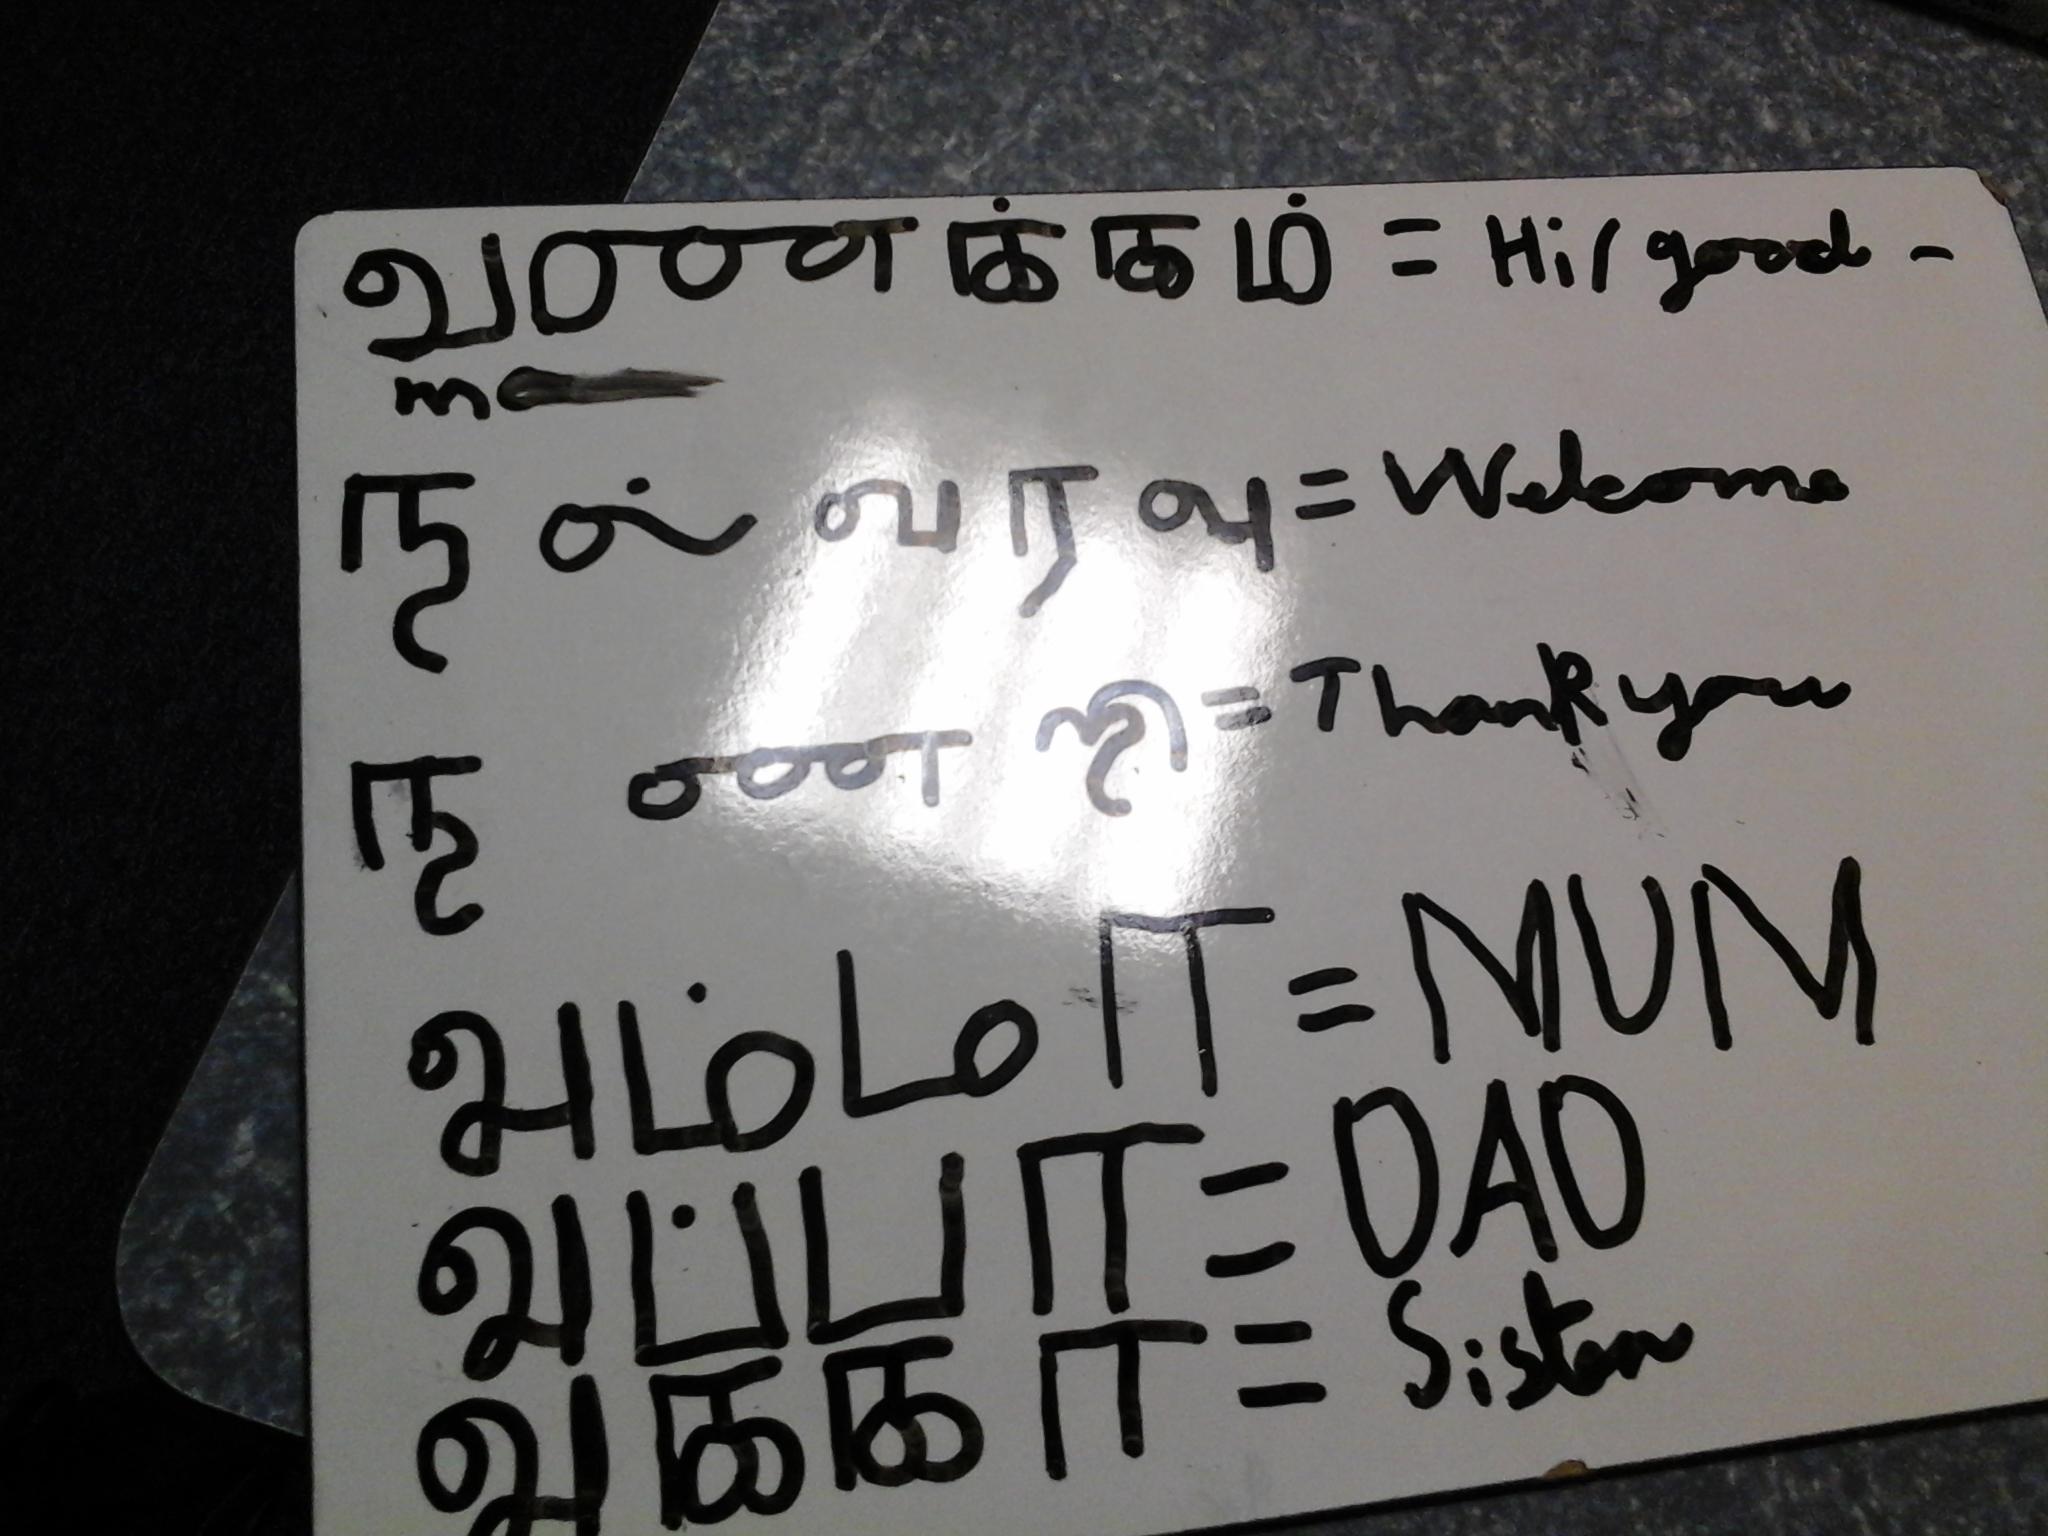 வணக்கம் = Hi/good -
நல்வரவு = Welcome
நன்றி = Thank you
அம்மா = MUM
அப்பா = DAD
அககா = Sister